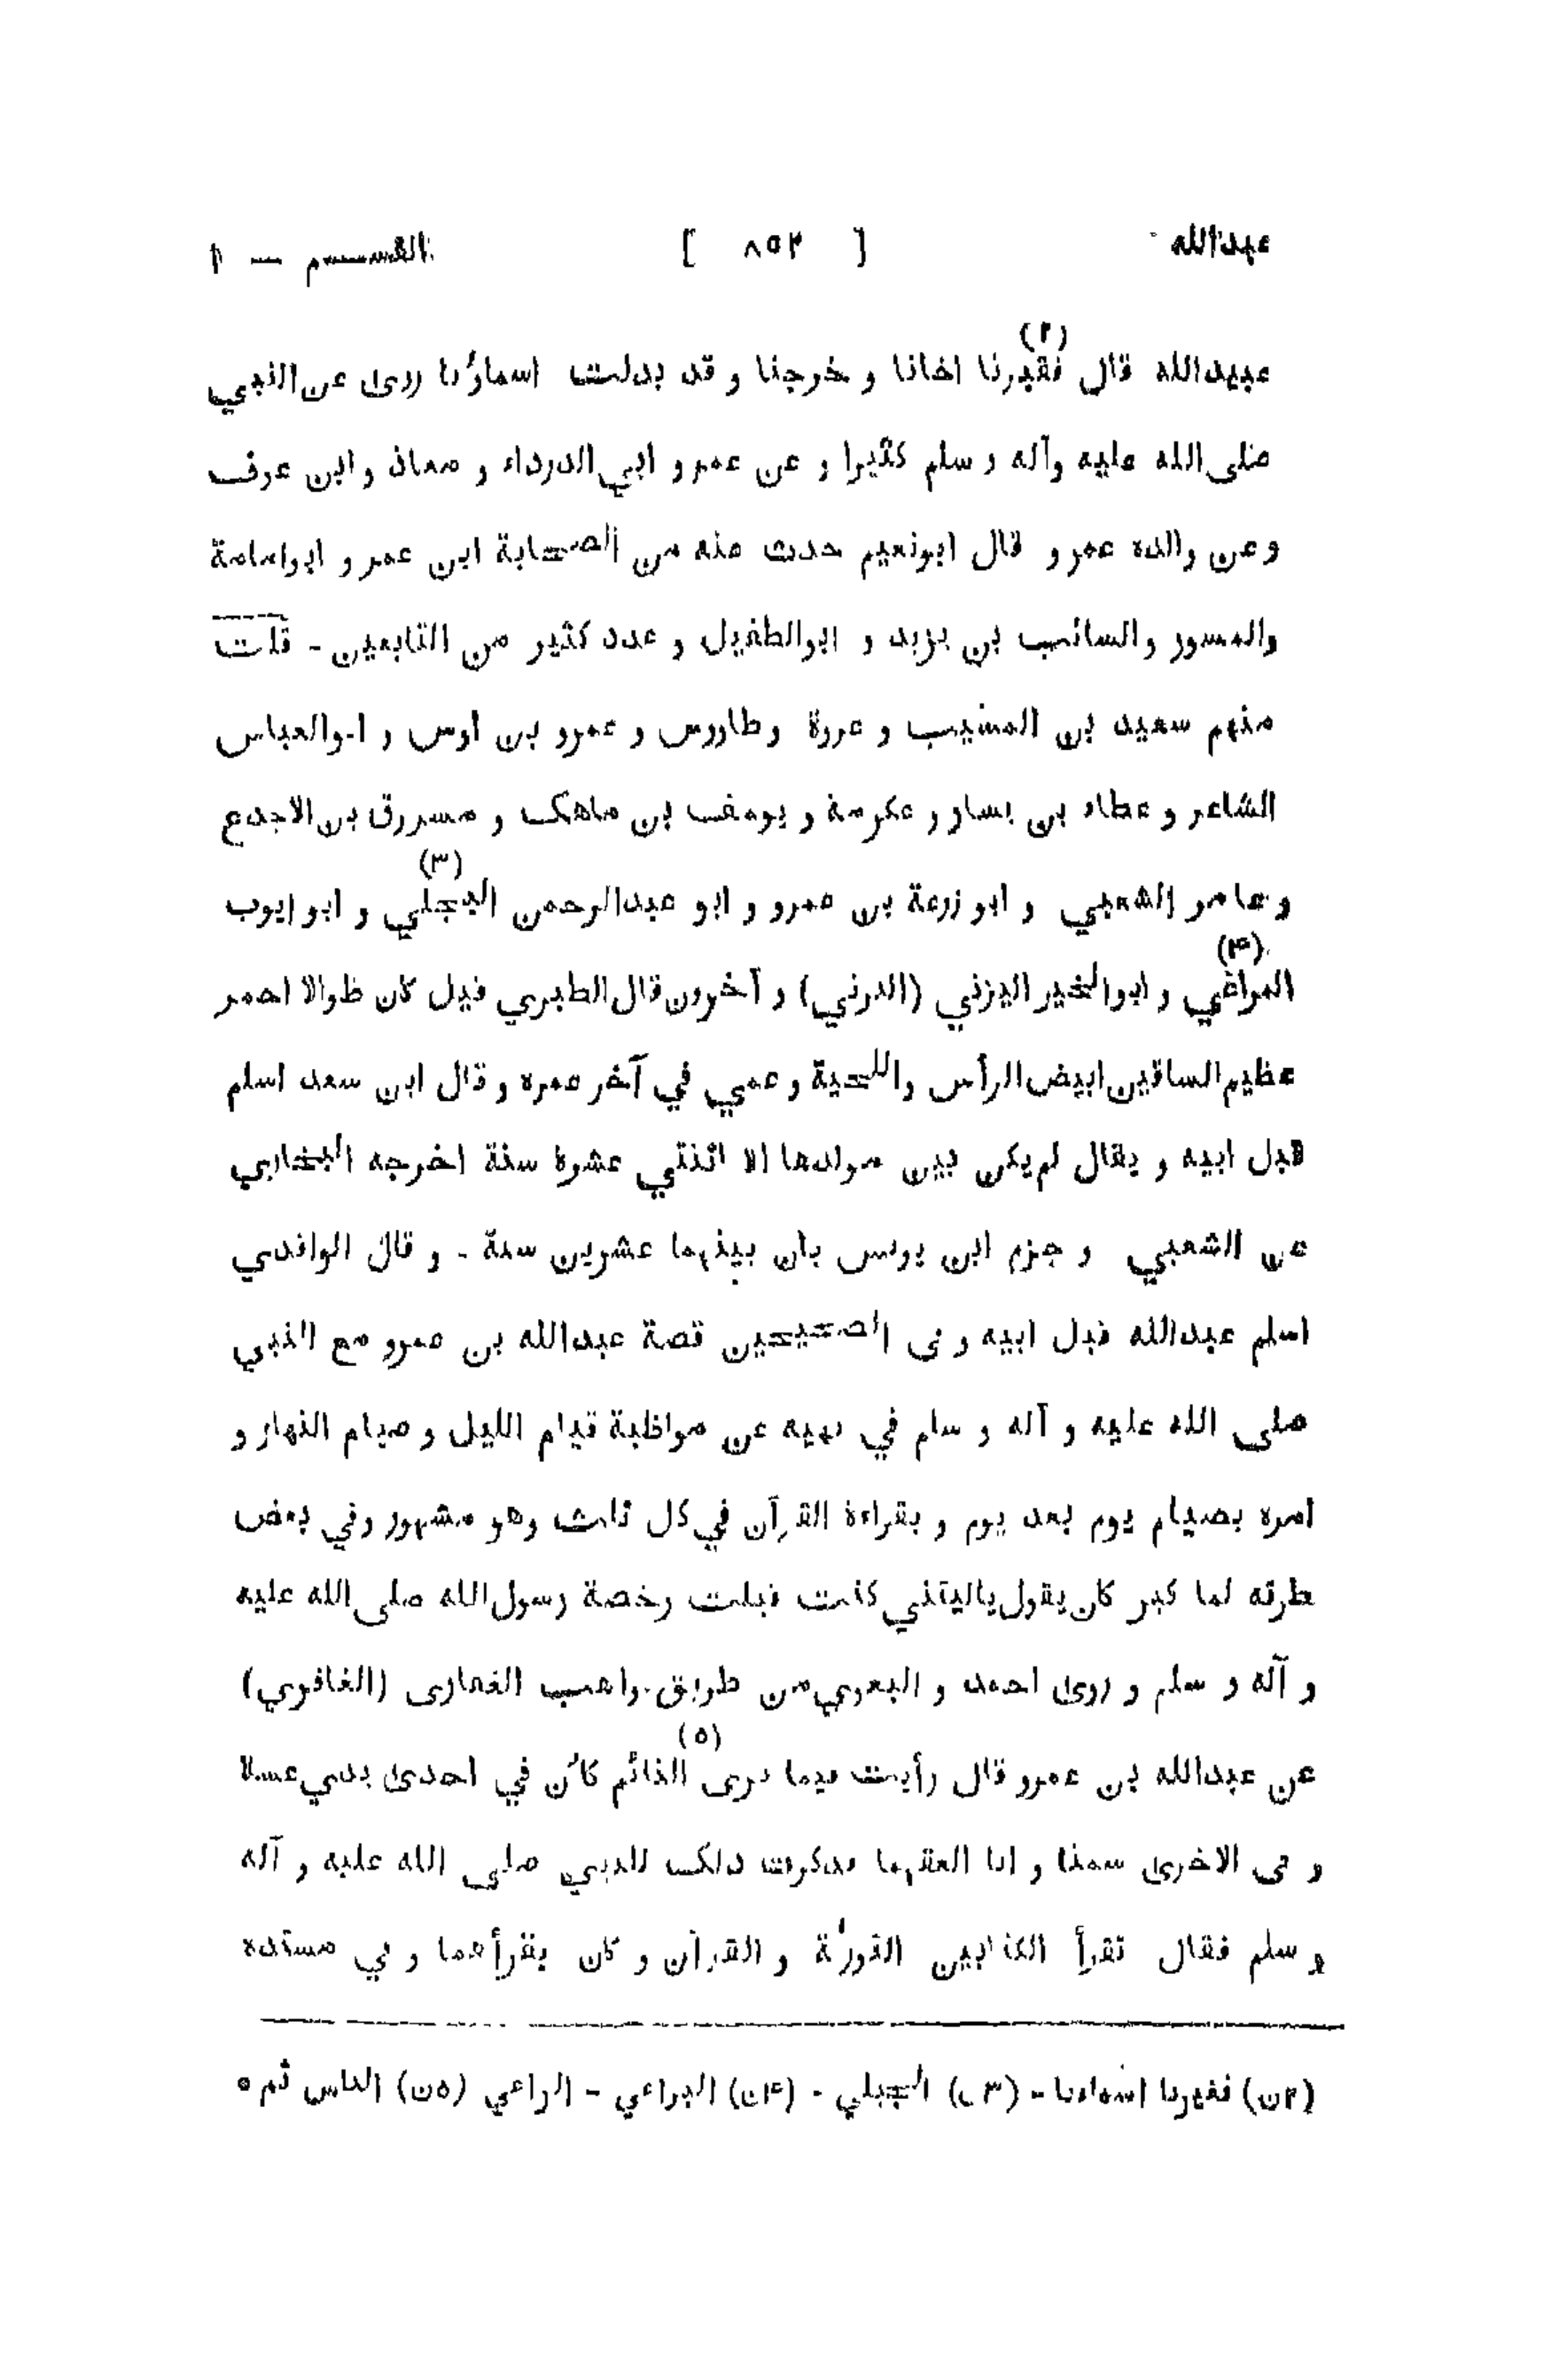 عبدالله [ ٨٥٢ ] القسم — ١
عبيدالله قال فقبرنا (٢) اخانا و خرجنا و قد بدلت اسماؤنا روى عن النبي
صلى الله عليه وآله و سلم كثيرا و عن عمر و ابي الدرداء و معاذ و ابن عوف
و عن والده عمرو قال ابونعيم حدث عنه من الصحابة ابن عمر و ابوامامة
والمسور والسائب بن يزيد و ابوالطفيل و عدد كثير من التابعين - قلت
منهم سعيد بن المسيب و عروة و طاووس و عمرو بن اوس و ابوالعباس
الشاعر و عطاء بن يسار و عكرمة و يوسف بن ماهك و مسروق بن الاجدع
و عامر الشعبي و ابو زرعة بن عمرو و ابو عبدالرحمن البجلي (٣) و ابو ايوب
المراغي (۴) و ابوالخير اليزني (الدرني) و آخرون قال الطبري قيل كان طوالا احمر
عظيم الساقين ابيض الرأس واللحية و عمي في آخر عمره و قال ابن سعد اسلم
قبل ابيه و يقال لم يكن بين مولدهما الا اثنتي عشرة سنة اخرجه البخاري
عن الشعبي و جزم ابن يونس بان بينهما عشرين سنة - و قال الواقدي
اسلم عبدالله قبل ابيه و فى الصحيحين قصة عبدالله بن عمرو مع النبي
صلى الله عليه و آله و سلم في نهيه عن مواظبة قيام الليل و صيام النهار و
امره بصيام يوم بعد يوم و بقراءة القرآن في كل ثلث وهو مشهور وفي بعض
طرقه لما كبر كان يقول ياليتني كنت قبلت رخصة رسول الله صلى الله عليه
و آله و سلم و روى احمد و البغوي من طريق واهب الغفارى (الغافري)
عن عبدالله بن عمرو قال رأيت فيما يرى النائم (٥) كأن في احدى يدي عسلا
و فى الاخرى سمنا و انا العقهما فذكرت ذلك للنبي صلى الله عليه و آله
و سلم فقال تقرأ الكتابين التورٰة و القرآن و كان يقرأهما و في مسنده
(٢ن) فغيرنا اسماءنا - (٣ن) الجبلي - (۴ن) البراعي - الراعي (٥ن) الناس ثم ٥